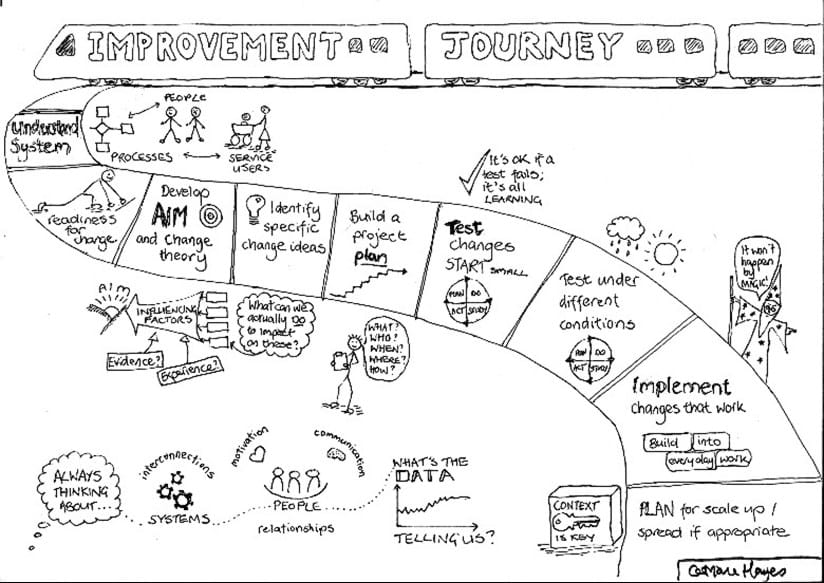 IMPROVEMENT JOURNEY
PEOPLE
PROCESSES
SERVICE
USERS
Understand
System
readiness
for
change
Develop
AIM
and change
theory
Identify
specific
change ideas
Build a
project
plan
It's ok if a
test fails;
it's all
LEARNING
Test
changes
START SMALL
PLAN DO
ACT STUDY
Test under
different
conditions
PLAN DO
ACT STUDY
It won't
happen
by
MAGIC!
Implement
changes that work
Build into
everyday work
AIM
INFLUENCING
FACTORS
Evidence?
Experience?
What can we
actually DO
to impact
on these?
WHAT?
WHO?
WHEN?
WHERE?
HOW?
ALWAYS
THINKING
ABOUT...
interconnections
SYSTEMS
motivation
communication
PEOPLE
relationships
WHAT'S THE
DATA
TELLING US?
CONTEXT
IS KEY
PLAN for scale up /
spread if appropriate
Hayes